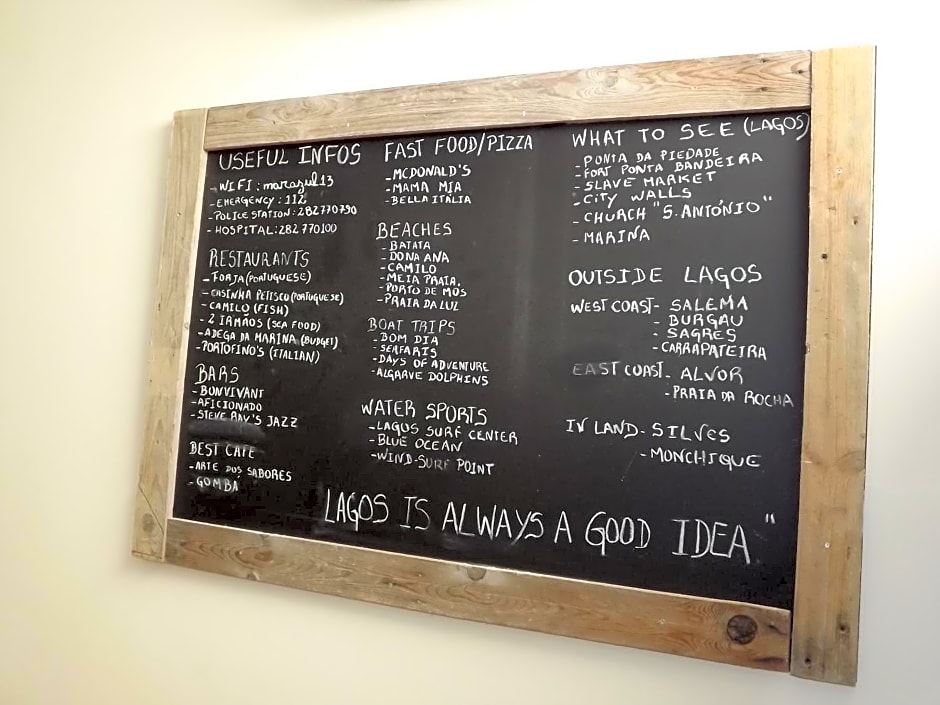 USEFUL INFOS
- WIFI : marazul13
- EMERGENCY : 112
- POLICE STATION: 282770790
- HOSPITAL: 282 770100
RESTAURANTS
- FORJA (PORTUGUESE)
- CASINHA PETISCO (PORTUGUESE)
- CAMILO (FISH)
- 2 IRMÃOS (SEA FOOD)
- ADEGA DA MARINA (BUDGET)
- PORTOFINO'S (ITALIAN)
BARS
- BONVIVANT
- AFICIONADO
- STEVIE RAY'S JAZZ
BEST CAFE
- ARTE DOS SABORES
- GOMBÁ
FAST FOOD/PIZZA
- MCDONALD'S
- MAMA MIA
- BELLA ITÁLIA
BEACHES
- BATATA
- DONA ANA
- CAMILO
- MEIA PRAIA.
- PORTO DE MÓS
- PRAIA DA LUZ
BOAT TRIPS
- BOM DIA
- SEAFARIS
- DAYS OF ADVENTURE
- ALGARVE DOLPHINS
WATER SPORTS
- LAGOS SURF CENTER
- BLUE OCEAN
- WIND-SURF POINT
WHAT TO SEE (LAGOS)
- PONTA DA PIEDADE
- FORT PONTA BANDEIRA
- SLAVE MARKET
- CITY WALLS
- CHURCH "S. ANTÓNIO"
- MARINA
OUTSIDE LAGOS
WEST COAST - SALEMA
- BURGAU
- SAGRES
- CARRAPATEIRA
EAST COAST - ALVOR
- PRAIA DA ROCHA
IN LAND - SILVES
- MONCHIQUE
LAGOS IS ALWAYS A GOOD IDEA"